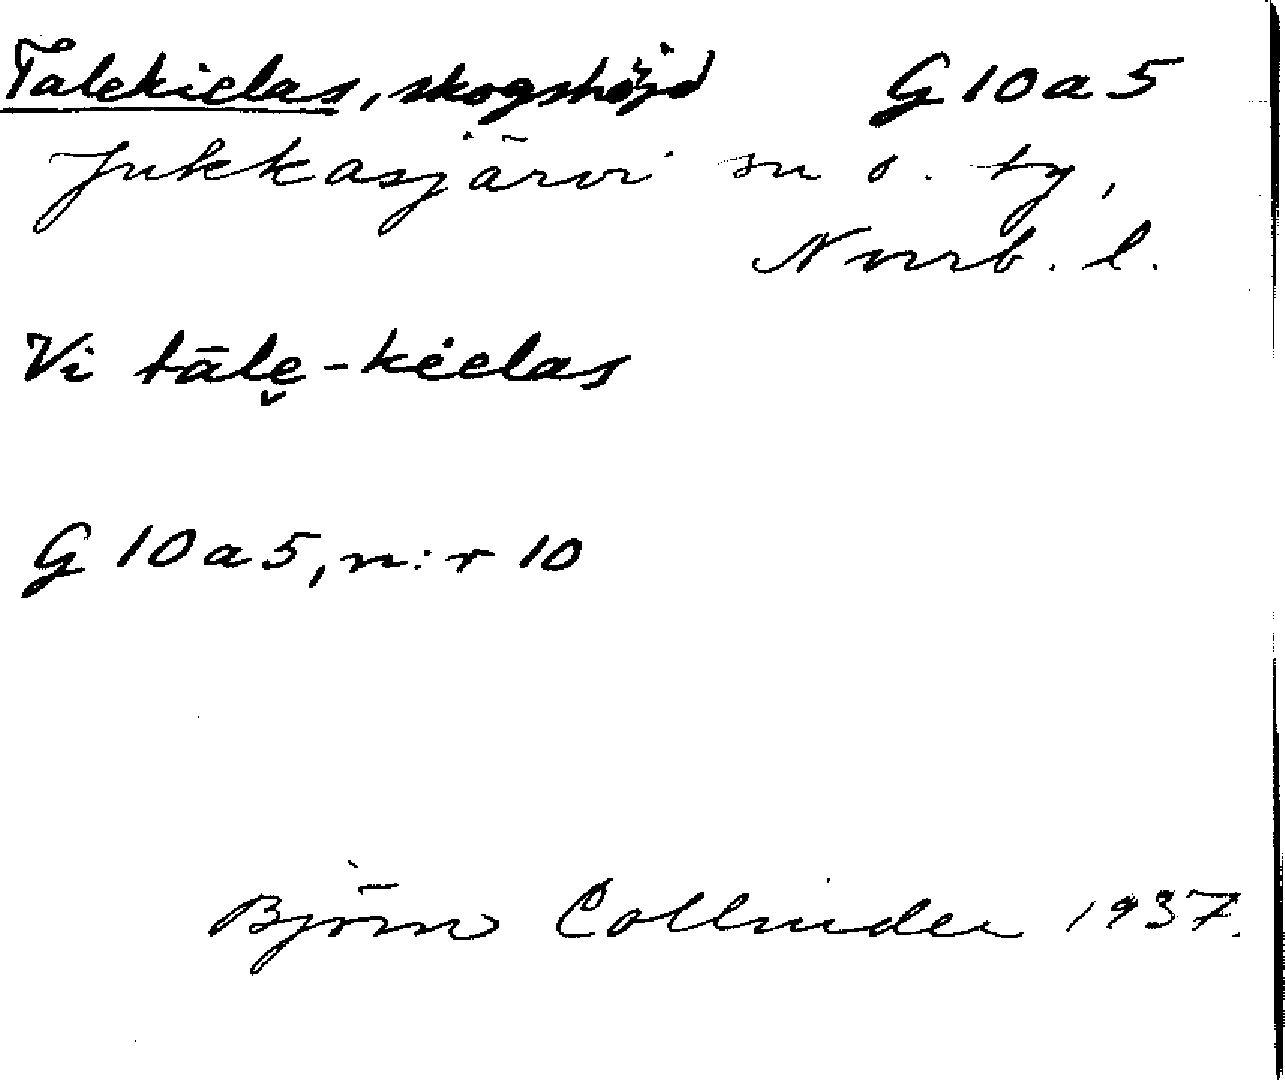 Talekielas, skogshöjd G10a5
Jukkasjärvi sn o. tg,
Norrb. l.
Vi tāle̬-kēelas
G 10a5, n:r 10
Björn Collinder 1937.